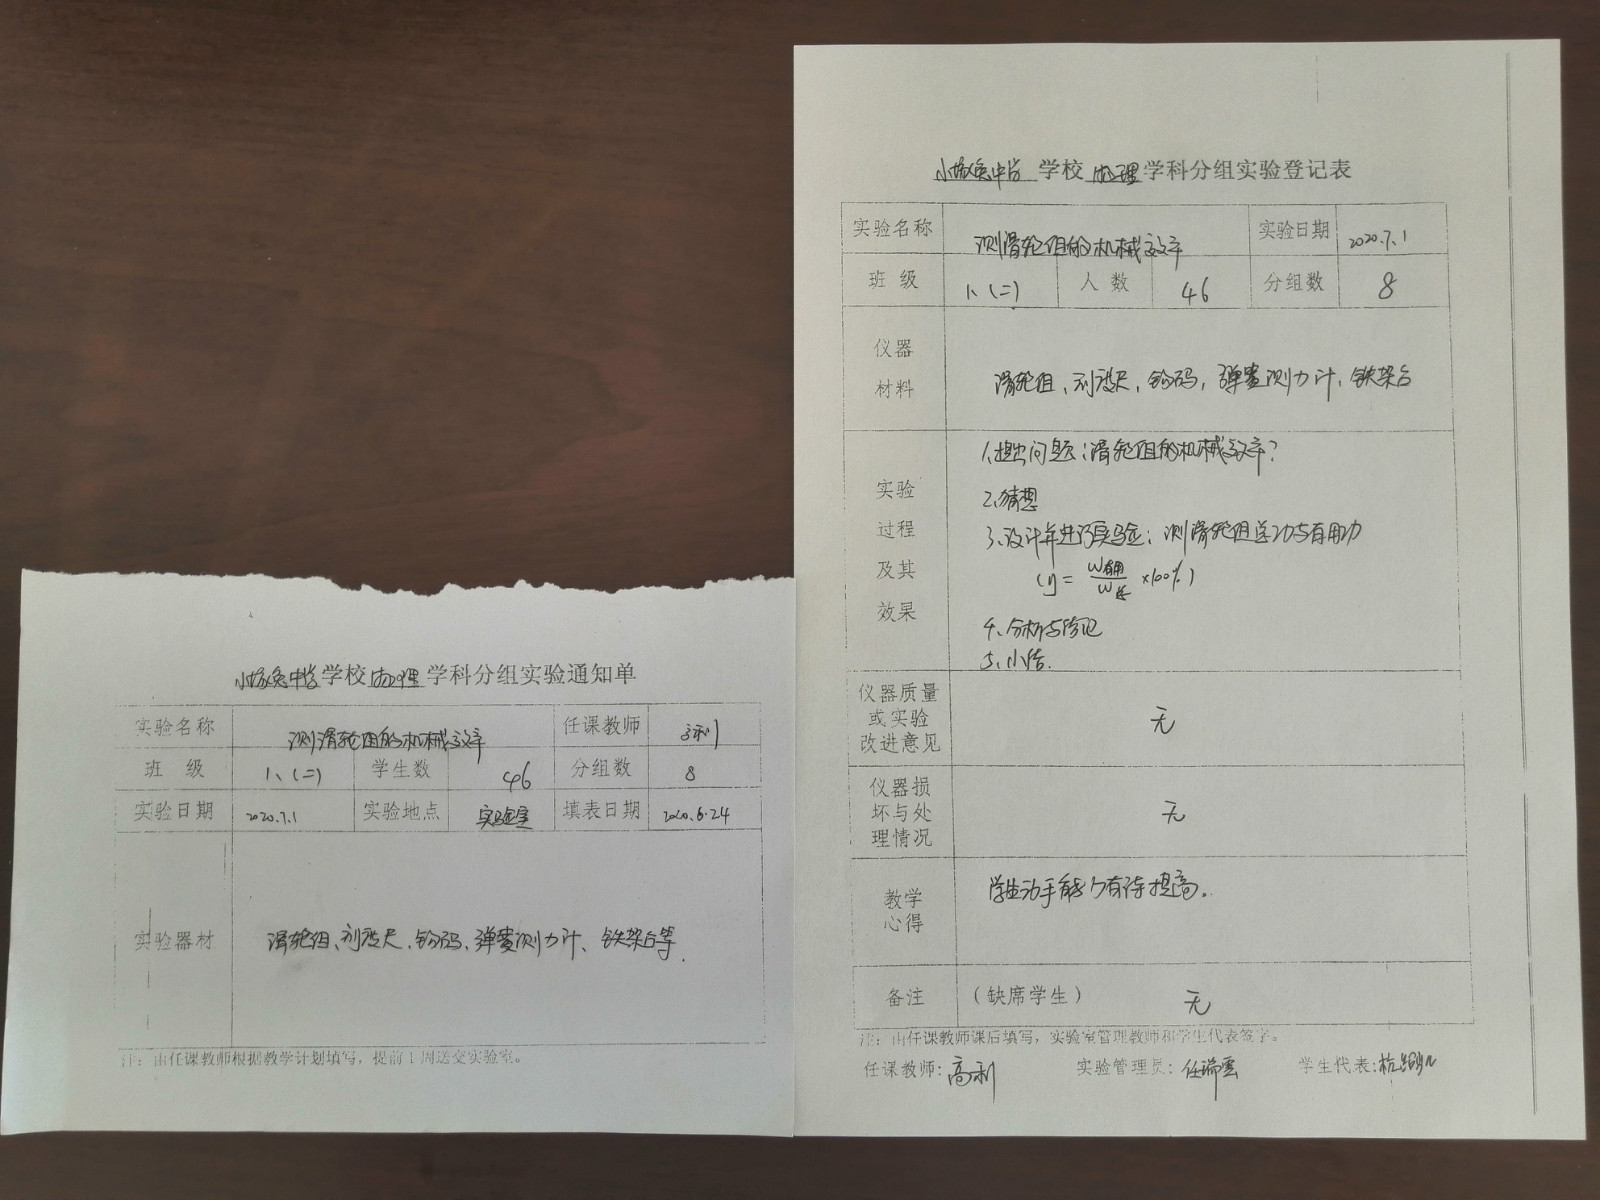 学校物理学科分组实验通知单
实验名称 测滑轮组的机械效率 任课教师
班级 八(二) 学生数 46 分组数 8
实验日期 2020.7.1 实验地点 实验室 填表日期 2020.6.24
实验器材 滑轮组、刻度尺、钩码、弹簧测力计、铁架台等.
注：由任课教师根据教学计划填写，提前1周送交实验室。
学校物理学科分组实验登记表
实验名称 测滑轮组的机械效率 实验日期 2020.7.1
班级 八(二) 人数 46 分组数 8
仪器
材料
滑轮组、刻度尺、钩码，弹簧测力计，铁架台
实验
过程
及其
效果
1.提出问题：滑轮组的机械效率？
2.猜想
3.设计并进行实验：测滑轮组总功与有用功
(η = W有用/W总 ×100%)
4.分析与论证
5.小结.
仪器质量
或实验
改进意见
无
仪器损
坏与处
理情况
无
教学
心得
学生动手能力有待提高。
备注 (缺席学生) 无
注：由任课教师课后填写，实验室管理教师和学生代表签字。
任课教师：高利 实验管理员：任瑞雲 学生代表：